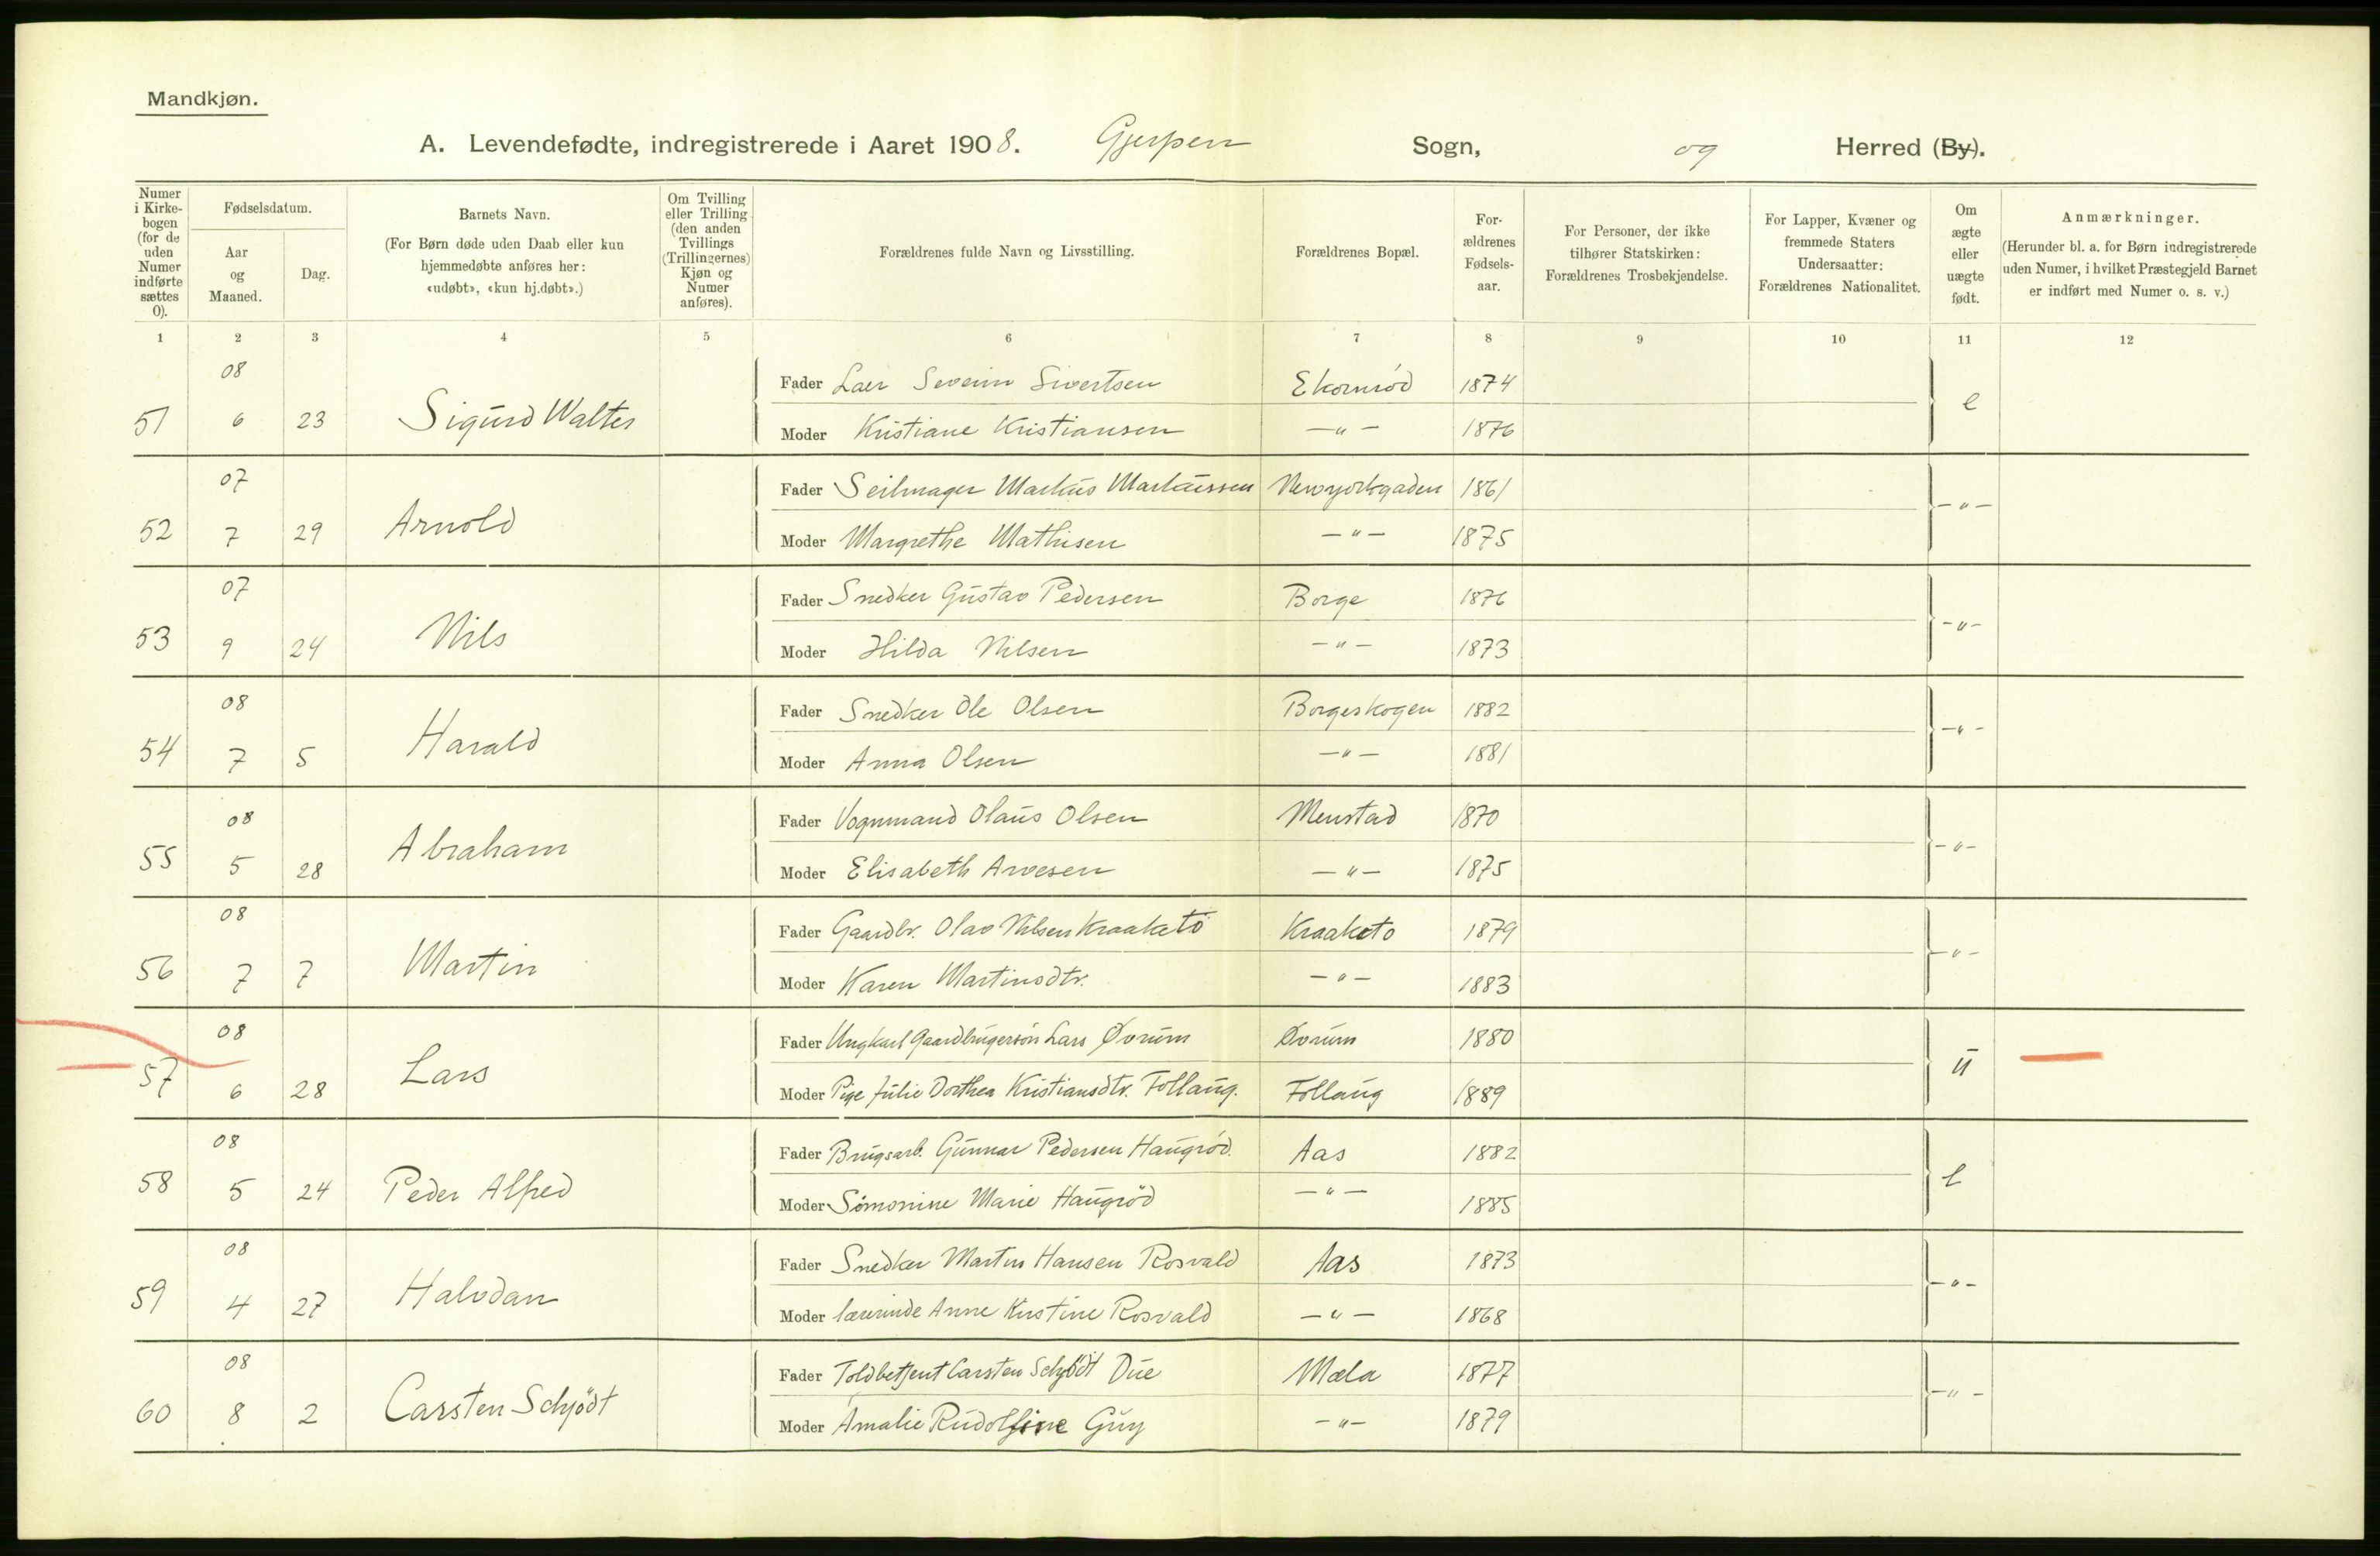 Mandkjøn.
A. Levendefødte, indregistrerede i Aaret 1908. Gjerpen Sogn, og Herred (By).
Numer i Kirkebogen (for de uden Numer indførte sættes 0).
Fødselsdatum.
Aar og Maaned.
Dag.
Barnets Navn.
(For Børn døde uden Daab eller kun hjemmedøbte anføres her: «udøbt», «kun hj.døbt».)
Om Tvilling eller Trilling (den anden Tvillings (Trillingernes) Kjøn og Numer anføres).
Forældrenes fulde Navn og Livsstilling.
Forældrenes Bopæl.
Forældrenes Fødselsaar.
For Personer, der ikke tilhører Statskirken: Forældrenes Trosbekjendelse.
For Lapper, Kvæner og fremmede Staters Undersaatter: Forældrenes Nationalitet.
Om ægte eller uægte født.
Anmærkninger.
(Herunder bl. a. for Børn indregistrerede uden Numer, i hvilket Præstegjeld Barnet er indført med Numer o. s. v.)
1 2 3 4 5 6 7 8 9 10 11 12
08 Fader Severin Sivertsen Ekornrød 1874 e
51 6 23 Sigurd Walter Moder Kristiane Kristiansen —"— 1876
07 Fader Seilmager Markus Markussen Newyorkgaden 1861 —"—
52 7 29 Arnold Moder Margrethe Mathisen —"— 1875
07 Fader Snedker Gustav Pedersen Borge 1876 —"—
53 9 24 Nils Moder Hilda Nilsen —"— 1873
08 Fader Snedker Ole Olsen Borgeskogen 1882 —"—
54 7 5 Harald Moder Anna Olsen —"— 1881
08 Fader Vognmand Olaus Olsen Menstad 1870 —"—
55 5 28 Abraham Moder Elisabeth Arvesen —"— 1875
08 Fader Gaardbr. Olav Nilsen Kraaketo Kraaketo 1879 —"—
56 7 7 Martin Moder Karen Martinsdtr. —"— 1883
08 Fader Ungkarl Gaardbrugersön Lars Øvrum Øvrum 1880 u
57 6 28 Lars Moder Pige Julie Dorthea Kristiansdtr. Follaug. Follaug 1889
08 Fader Brugsarb. Gunnar Pedersen Haugröd. Aas 1882 e
58 5 24 Peder Alfred Moder Simonine Marie Haugröd —"— 1885
08 Fader Snedker Martin Hansen Rosvald Aas 1873 —"—
59 4 27 Halvdan Moder lærerinde Anne Kirstine Rosvald —"— 1868
08 Fader Toldbetjent Carsten Schjödt Due Mæla 1877 —"—
60 8 2 Carsten Schjödt Moder Amalie Rudolfine Guy —"— 1879